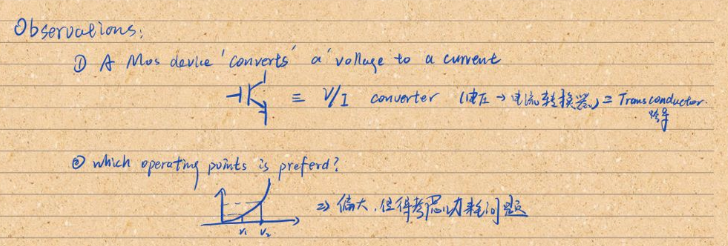 Observations:
① A Mos device 'converts' a voltage to a current
≡ V/I converter (电压 → 电流转换器) = Transconductor
跨导
② which operating points is preferd?
V₁ V₂ ⇒ 偏大, 但得考虑功耗问题